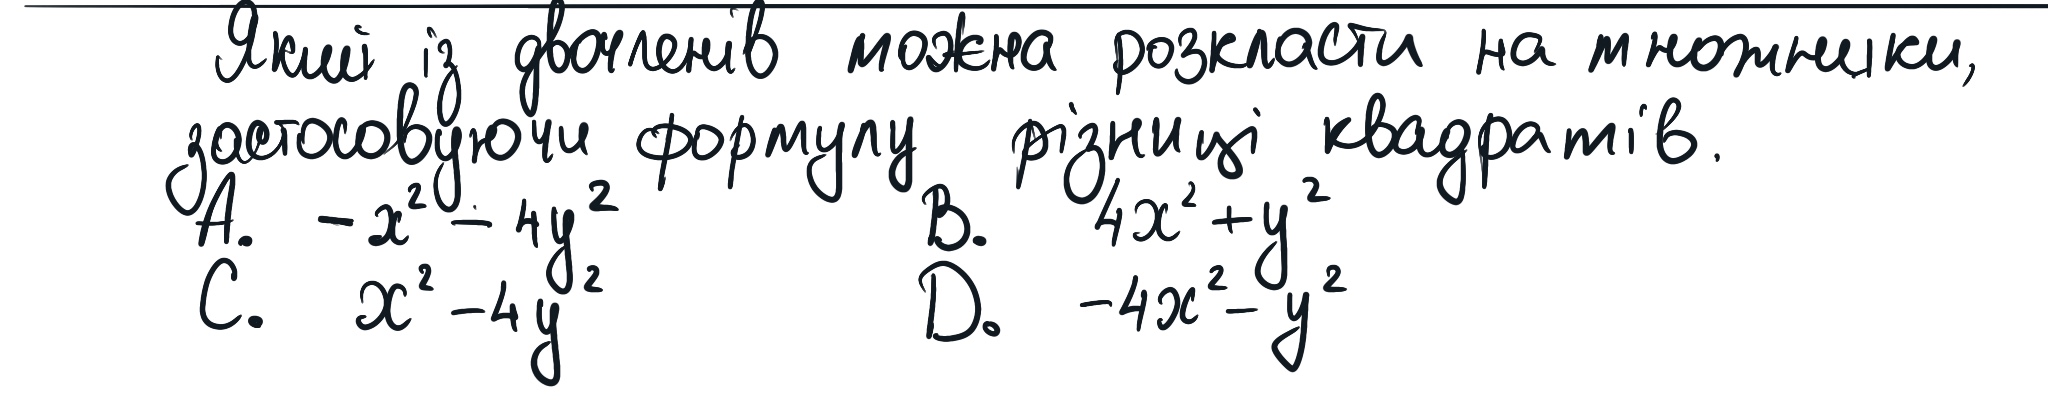 Який із двочленів можна розкласти на множники,
застосовуючи формулу різниці квадратів.
A. -x² - 4y² B. 4x² + y²
C. x² - 4y² D. -4x² - y²